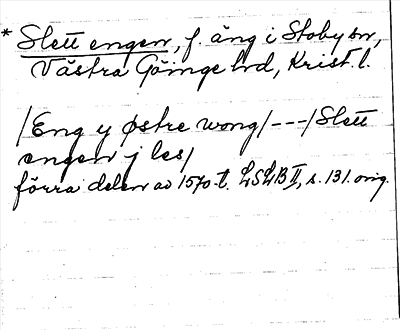 * Slett engen, f. äng i Stoby sn,
Västra Göinge hd, Krist. l.
/Eng y østre wong/ --- /Slett
engen j les/
förra delen av 1570-t. LSLB II, s. 131. orig.